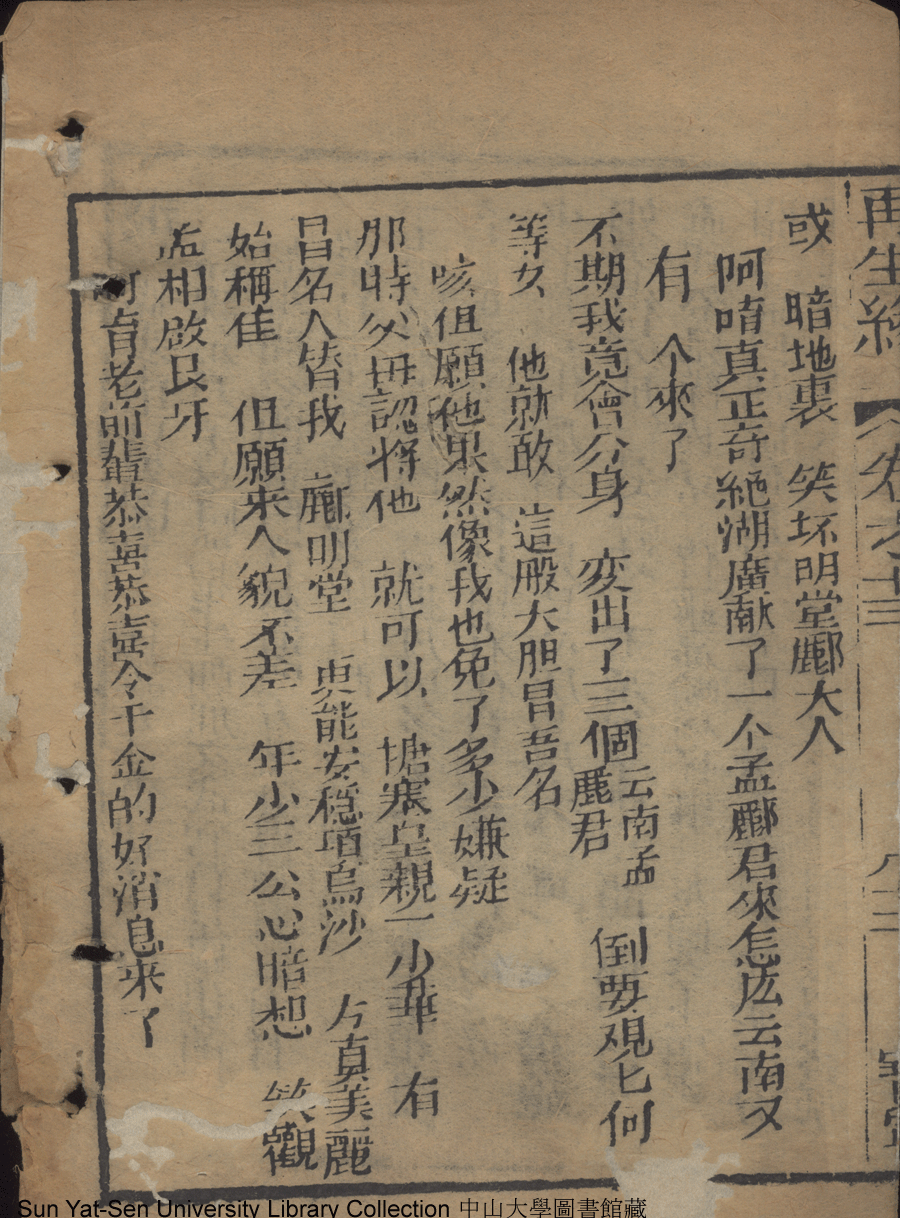 再生緣 卷之十三
或 暗地裏 笑坏明堂酈大人
阿唷真正奇絕湖廣献了一个孟酈君來怎広云南又
有 个來了
不期我竟會分身 变出了三個云南孟麗君 倒要覌匕何
等女 他就敢 這般大胆冒吾名
咳但願他果然像我也免了多少嫌疑
那時父毋認將他 就可以 搪塞皇親一小華 有
冒名人替我 酈明堂 更能安穏頂烏沙 方真美麗
始稱佳 但願来人貌不差 年少三公心暗想 笑觀
孟相啟艮牙
阿育老前輩恭喜恭喜令千金的好消息来了
Sun Yat-Sen University Library Collection 中山大學圖書館藏